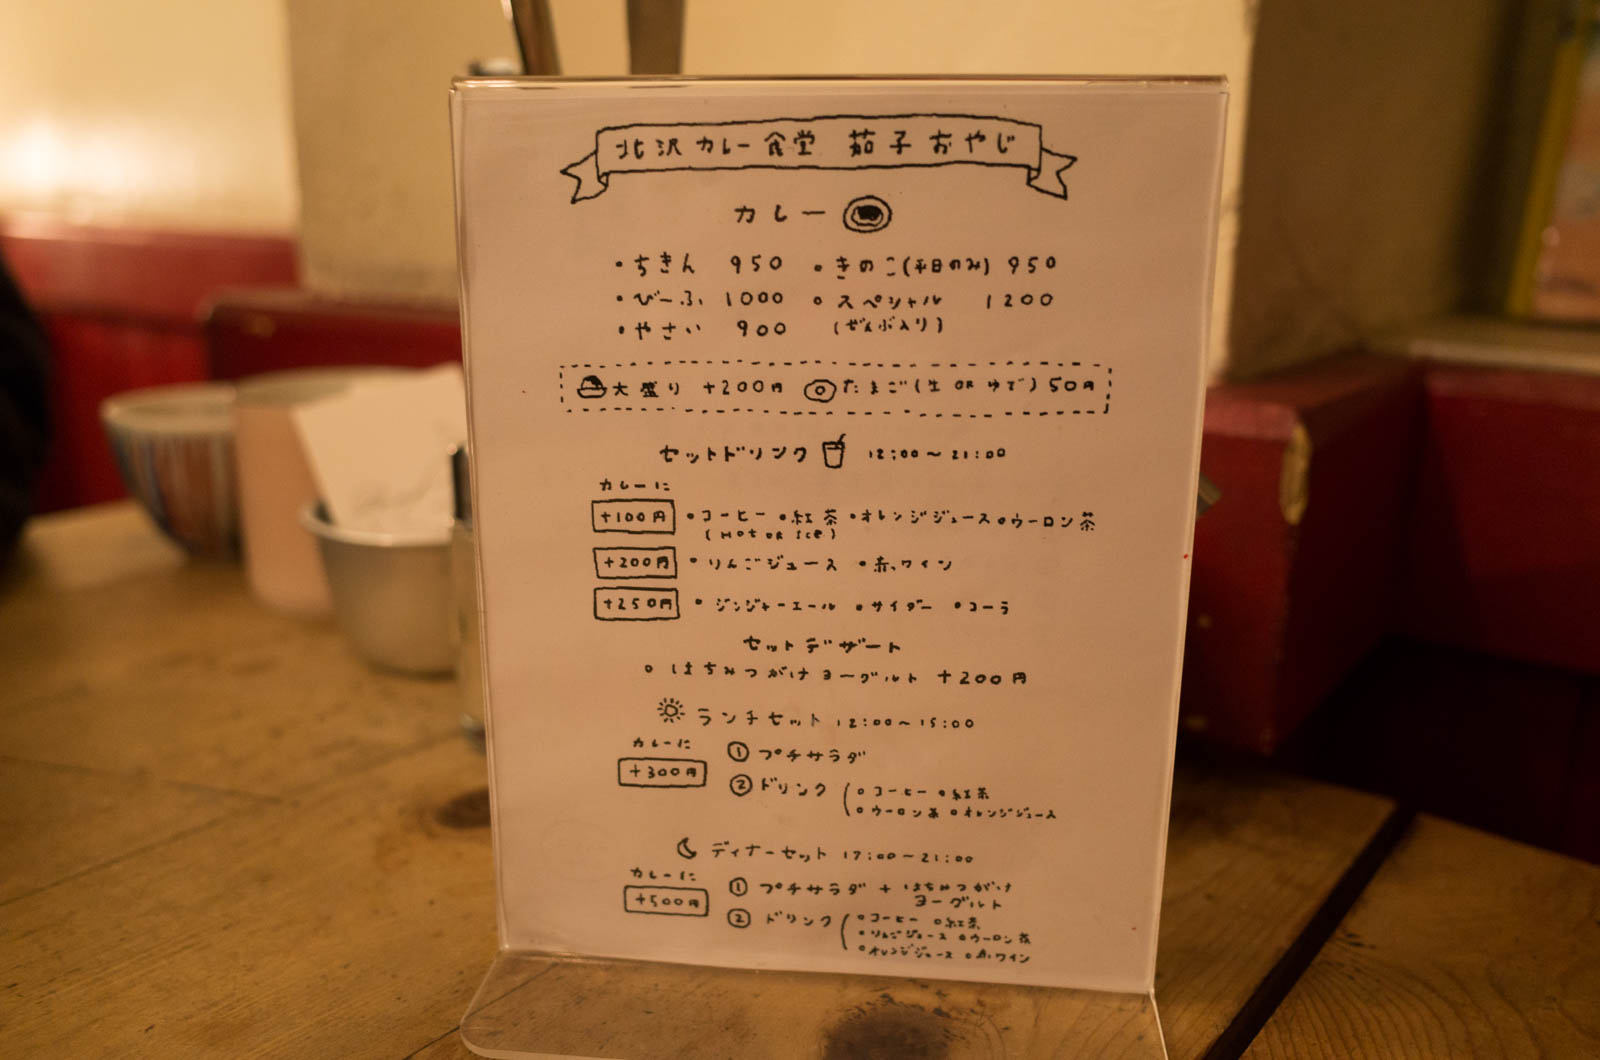 北沢カレー食堂 茄子おやじ
カレー
・ちきん 950 ・きのこ(平日のみ) 950
・びーふ 1000 ・スペシャル 1200
・やさい 900 (ぜんぶ入り)
大盛り +200円 たまご(生 OR ゆで) 50円
セットドリンク 12:00〜21:00
カレーに
+100円 ・コーヒー ・紅茶 ・オレンジジュース ・ウーロン茶
(Hot OR Ice)
+200円 ・りんごジュース ・赤ワイン
+250円 ・ジンジャーエール ・サイダー ・コーラ
セットデザート
・はちみつがけヨーグルト +200円
ランチセット 12:00〜15:00
カレーに
+300円 ① プチサラダ
② ドリンク ・コーヒー ・紅茶
・ウーロン茶 ・オレンジジュース
ディナーセット 17:00〜21:00
カレーに
+500円 ① プチサラダ + はちみつがけ
ヨーグルト
② ドリンク ・コーヒー ・紅茶
・りんごジュース ・ウーロン茶
・オレンジジュース ・赤ワイン